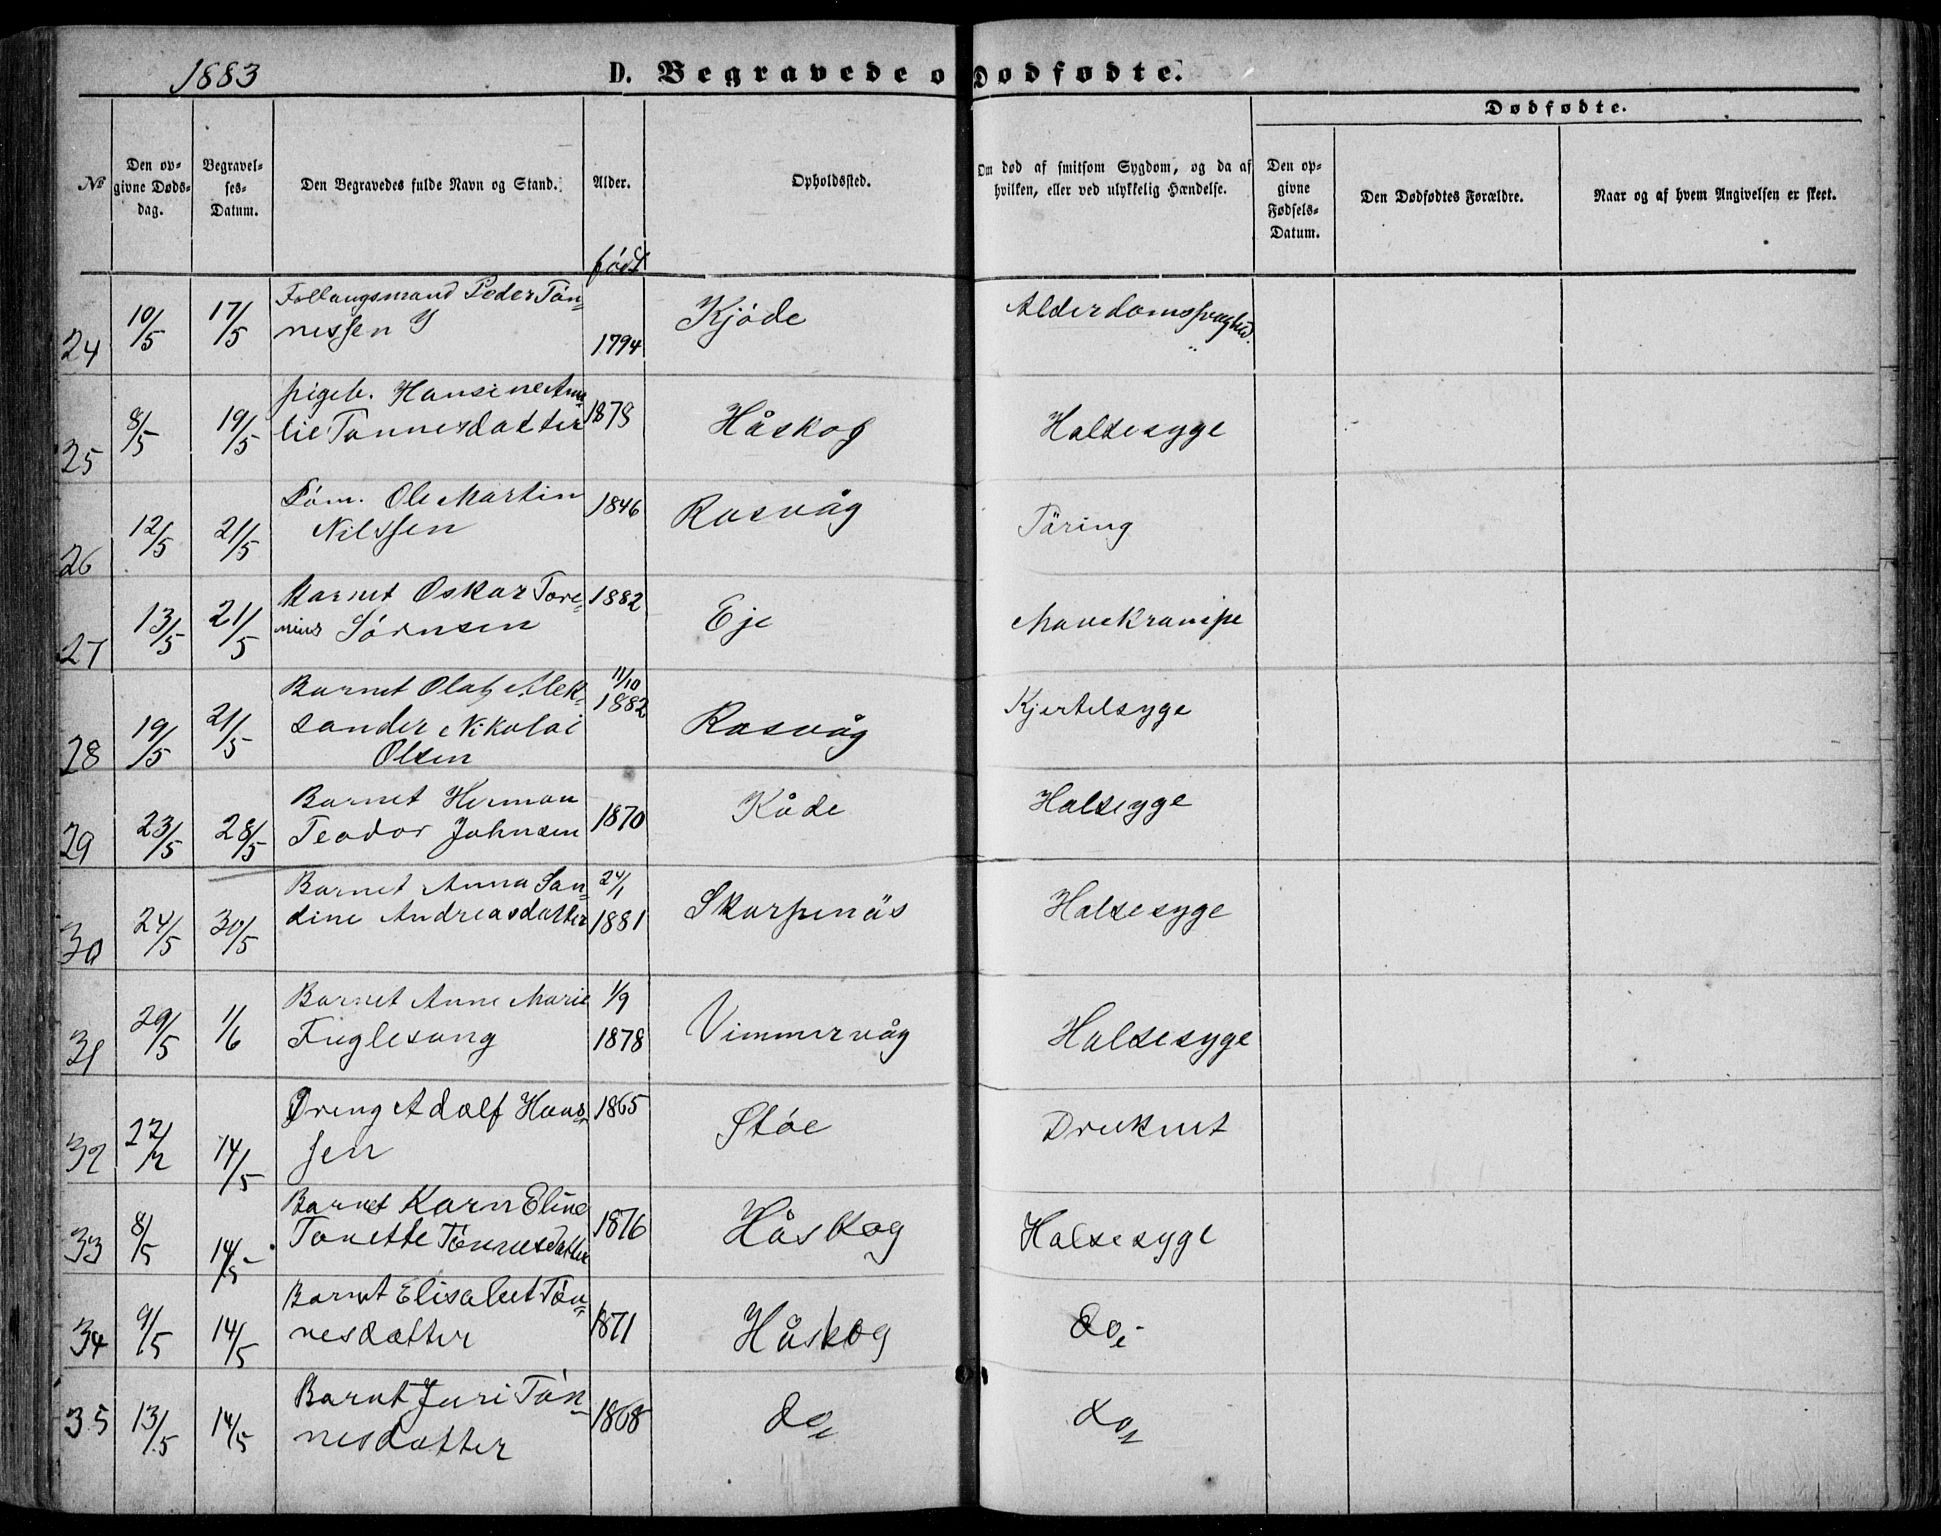 1883
D. Begravede o
Dødfødte.
Dødfødte.
No
Den op-
givne Døds-
dag.
Begravel-
ses-
Datum.
Den Begravedes fulde Navn og Stand.
Alder.
Opholdssted.
Om død af smitsom Sygdom, og da af
hvilken, eller ved ulykkelig Hændelse.
Den op-
givne
Fødsels-
Datum.
Den Dødfødtes Forældre.
Naar og af hvem Angivelsen er skeet.
født
24 10/5 17/5 Follaugsmand Peder Tön-
nessen 1794 Kjöde Alderdomssvaghed.
25 8/5 19/5 pigeb. Hansine Ama-
lie Tønnesdatter 1878 Håskog Halsesyge
26 12/5 21/5 Söm. Ole Martin
Nilssen 1846 Rasvåg Täring
27 13/5 21/5 Barnet Oskar Tore-
nius Sörnsen 1882 Eje Mavekrampe
28 19/5 21/5 Barnet Olaf Alek-
sander Nikolai
Olsen 11/10 1882 Rasvåg Kjertelsyge
29 23/5 28/5 Barnet Herman
Teodor Johnsen 1870 Kåde Halsesyge
30 24/5 30/5 Barnet Anna San-
dine Andreasdatter 24/1 1881 Skarpenäs Halsesyge
31 29/5 1/6 Barnet Anne Marie
Fuglesang 1/9 1878 Vimmervåg Halsesyge
32 14/5 Dreng Adolf Hans-
sen 1865 Stöe Druknet
33 8/5 14/5 Barnet Karn Eline
Tonette Tönnesdatter 1876 Håskog Halsesyge
34 9/5 14/5 Barnet Elisabet Tön-
nesdatter 1871 Håskog do,-
35 13/5 14/5 Barnt Juri Tön-
nesdatter 1868 do, do,